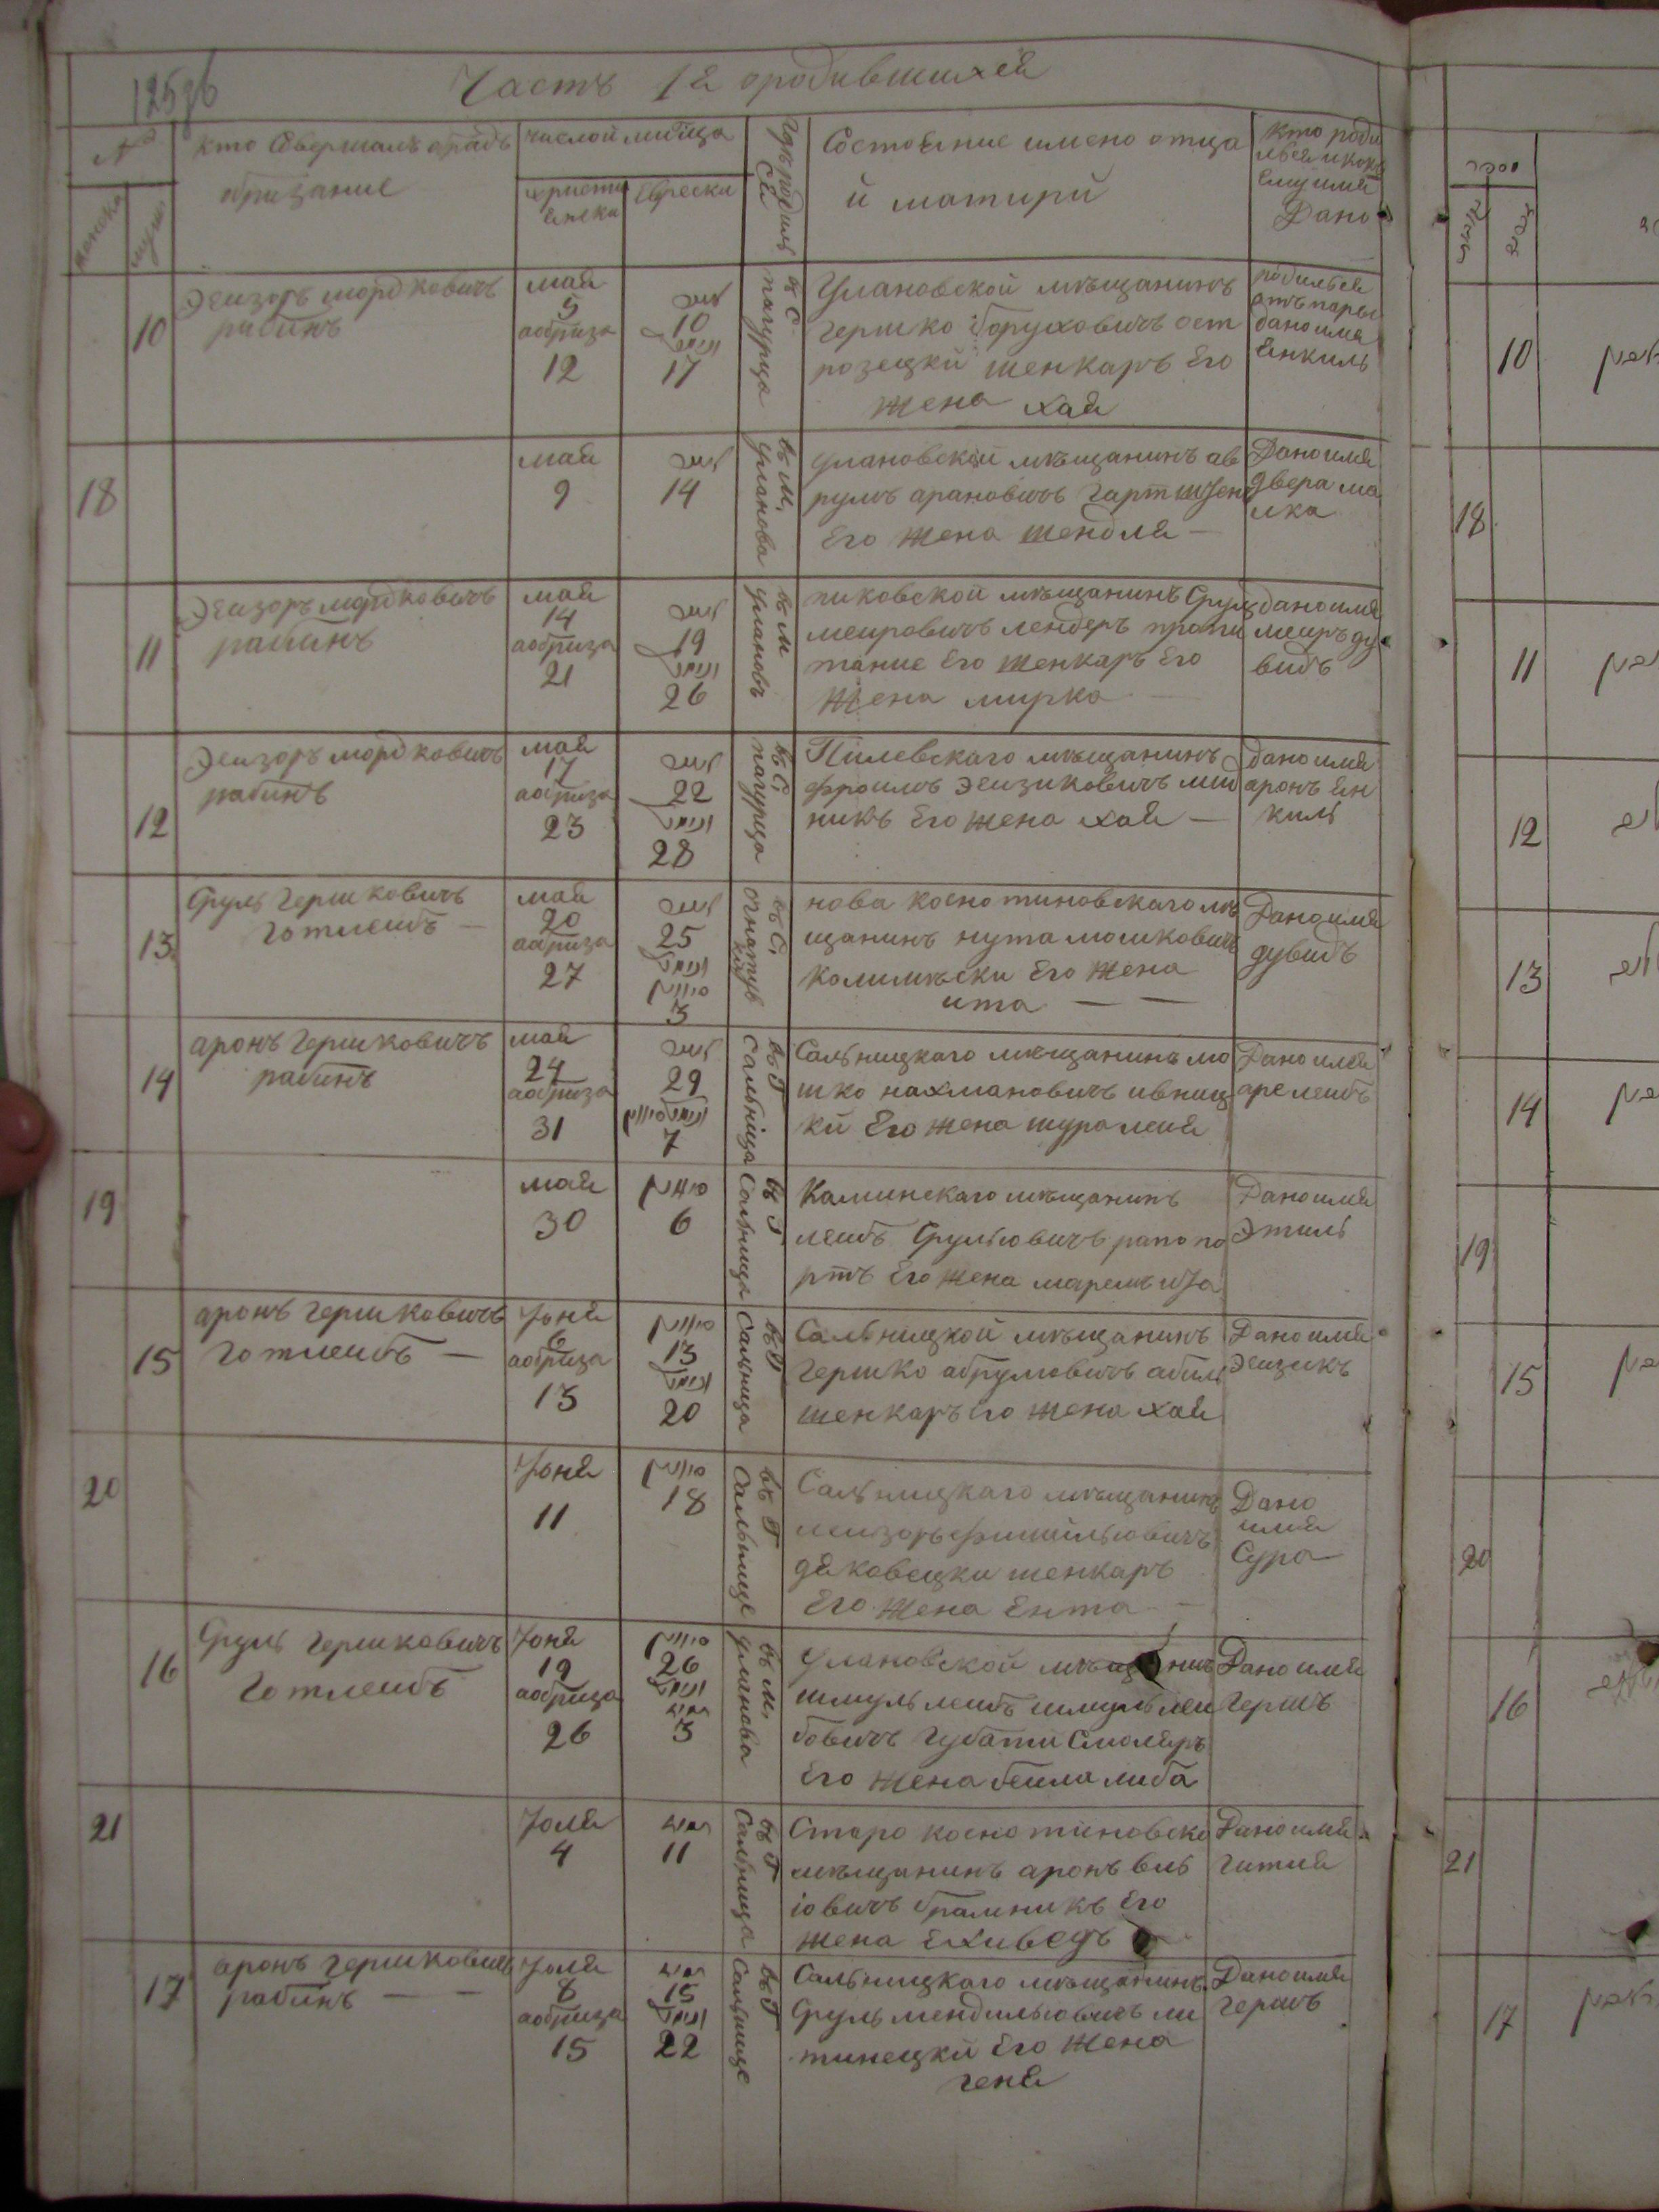 Часть 1я ородившихся
№
кто Совершалъ обрадъ
обризание
числой мисяца
христи
енска
Еврески
гдъ родилъ
ся
Состояние имено отца
й матири
кто роди
лься икоко
Ему имя
Дано
женска
муж.
10
Элизоръ мордковичъ
рабинъ
май
5
аобриза
12
10
17
въ С
пагурца
Улановской мъщанинъ
гершко боруховичъ ост
розецкй шенкаръ Его
жена хая
родильея
отъ пары
дано имя
Енкиль
18
май
9
14
въ м.
уланова
улановскои мъщанинъ ав
румъ арановичъ гартштен
Его жена шендля —
Дано имя
двера ма
лка
11
Элизоръ мордковичъ
рабинъ
май
14
аобриза
21
19
26
въ м
улановъ
пиковской мъщанинъ Сруль
меировичъ лендеръ пропи
тание Его шенкаръ Его
жена мирка
дано имя
меиръ ду
видъ
12
Элизоръ мордковичъ
рабинъ
май
17
аобриза
23
22
28
въ С.
пагурца
Пилевскаго мъщанинъ
фроимъ Элизиковичъ мил
никъ Его жена хая —
дано имя
аронъ Ен
киль
13
Сруль гершковичъ
готлеибъ —
май
20
аобриза
27
25
סיון
3
въ С.
нова косно тиновскаго мъ
щанинъ нута мошковичъ
калимъски Его жена
ита — —
Дано имя
дувидъ
14
аронъ гершковичъ
рабинъ
май
24
аобриза
31
29
7
въ Г
Сальница
Сальницкаго мъщанинъ мо
шко нахмановичъ ивниц
кй Его жена шура лея
Дано имя
аре леибъ
19
май
30
סיון
6
въ Г
Сальница
Каминскаго мъщанинъ
леибъ Срульовичъ рапопо
ртъ Его жена
Дано имя
Этиль
15
аронъ гершковичъ
готлеибъ —
Јоня
6
аобриза
13
סיון
13
20
въ Г
Сальница
Сальницкой мъщанинъ
гершко абрумовичъ абиль
шенкаръ Его жена хая
Дано имя
Элизикъ
20
Јоня
11
סיון
18
въ Г
Сальнице
Сальницкаго мъщанинъ
леизоръ фишильовичъ
дяковецки шенкаръ
Его жена Ента —
Дано
имя
Сура
16
Сруль гершковичъ
готлеибъ
Јоня
19
аобриза
26
סיון
26
תמוז
3
въ м.
уланова
улановской
шмуль леибъ шмуль леи
бовичъ губатй Смоляръ
Его жена беила либа
Дано имя
гершъ
21
Јоля
4
תמוז
11
въ Г
Сальница
Старо косно тиновско
мъщанинъ аронъ вль
іовичъ Его
жена Ехиведъ
Дано имя
гитля
17
аронъ гершковичъ
рабинъ — —
Јоля
8
аобриза
15
תמוז
15
22
въ Г
Сальнице
Сальницкаго мъщанинъ
Сруль мендильовичъ ли
тинецкй Его жена
геня
Дано имя
гершъ
10
18
11
12
13
14
19
15
20
16
21
17